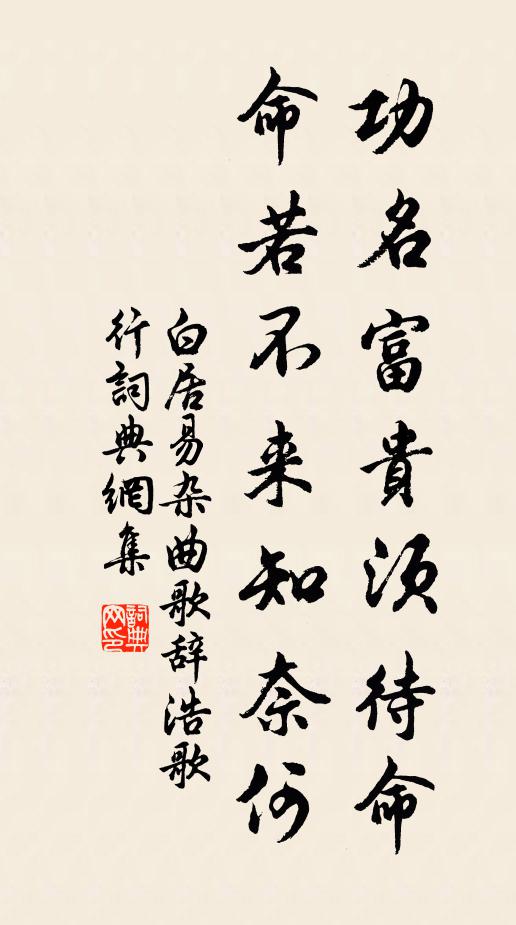 功名富貴須待命
命若不来知奈何
白居易杂曲歌辞浩歌
行詞典網集
詞典
网印